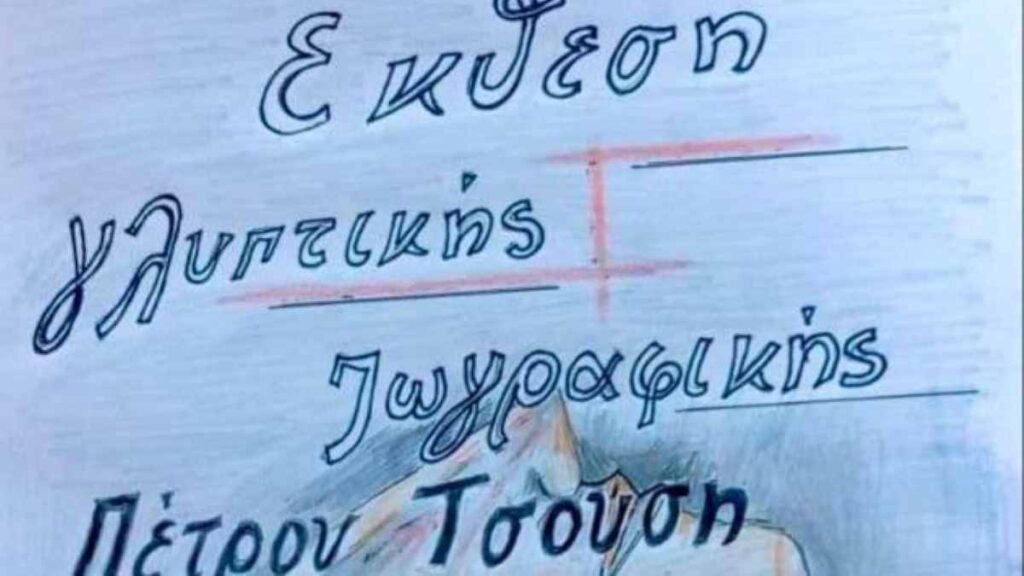 Εκθεση
γλυπτικής
Ζωγραφικής
Πέτρου Τσούση